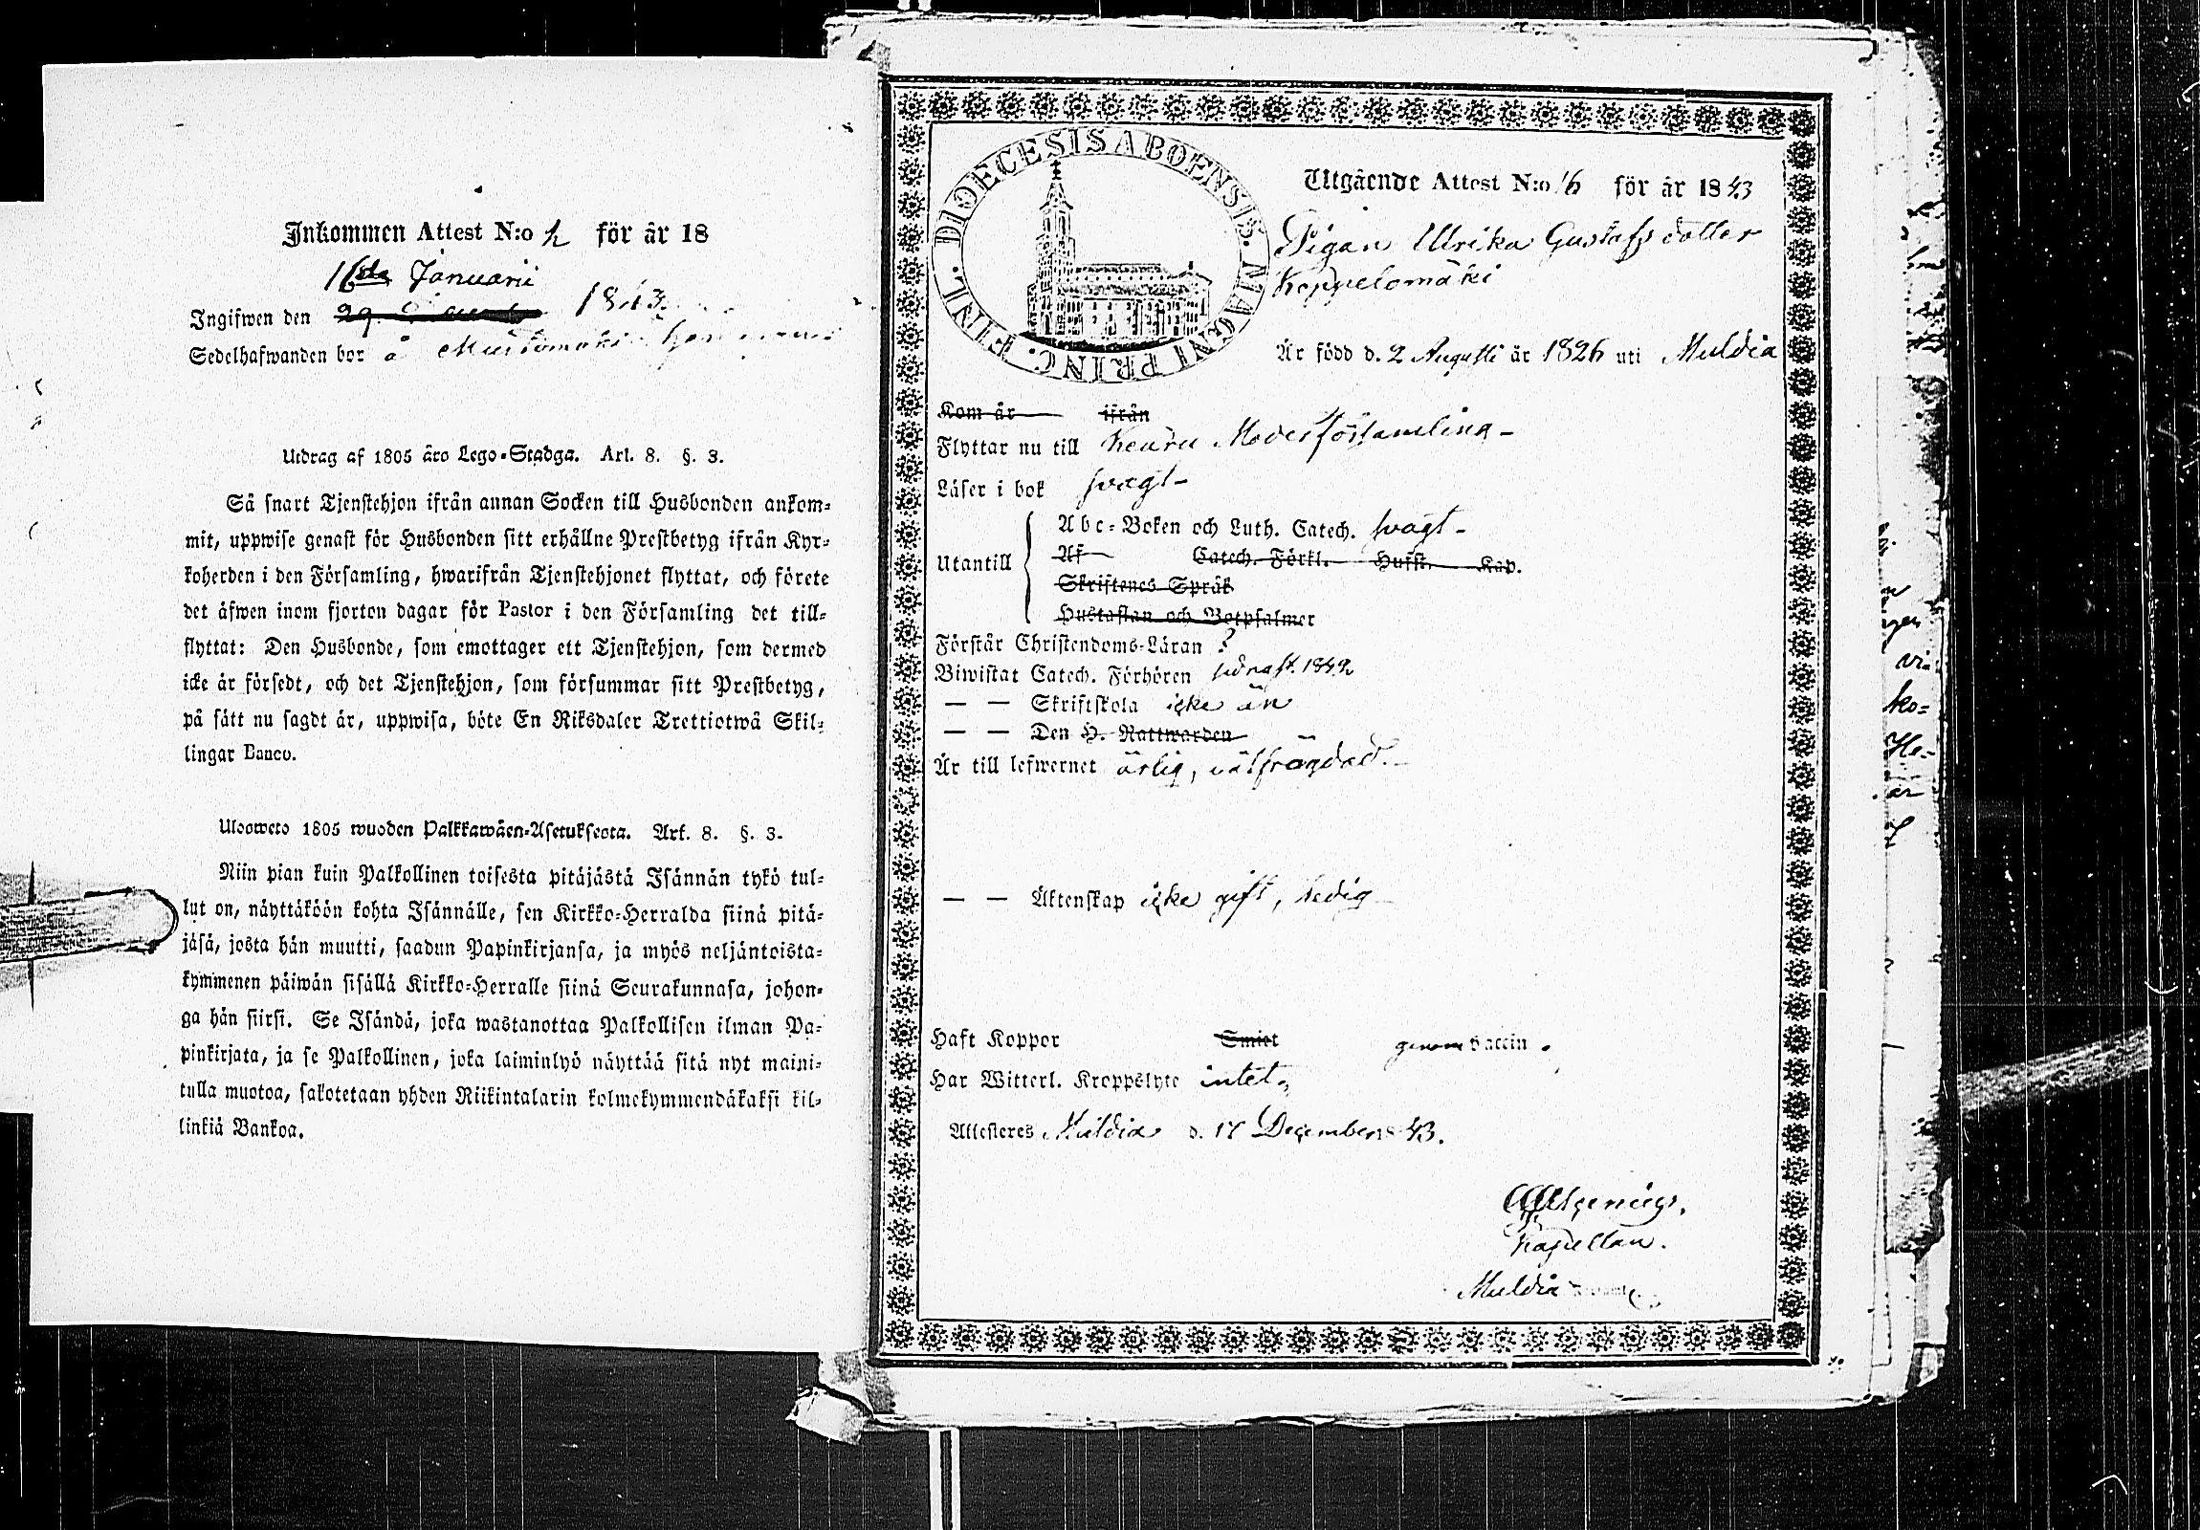 Inkommen Attest N:o 2 för år 18
16de Januarii
Ingifwen den 29 1843.
Sedelhafwanden bor å Mustomäki hemman
Utdrag af 1805 års Lego-Stadga. Art. 8. §. 3.
Så snart Tjenstehjon ifrån annan Socken till Husbonden ankom-
mit, uppwise genast för Husbonden sitt erhållne Prestbetyg ifrån Kyr-
koherden i den Församling, hwarifrån Tjenstehjonet flyttat, och förete
det äfwen inom fjorton dagar för Pastor i den Församling det till-
flyttat: Den Husbonde, som emottager ett Tjenstehjon, som dermed
icke är försedt, och det Tjenstehjon, som försummar sitt Prestbetyg,
på sätt nu sagdt är, uppwisa, böte En Riksdaler Trettiotwå Skil-
lingar Banco.
Ulosweto 1805 wuoden Palkkawäen-Asetuksesta. Art. 8. §. 3.
Niin pian kuin Palkollinen toisesta pitäjästä Isännän tykö tul-
lut on, näyttäköön kohta Isännälle, sen Kirkko-Herralda siinä pitä-
jäsä, josta hän muutti, saadun Papinkirjansa, ja myös neljäntoista-
kymmenen päiwän sisällä Kirkko-Herralle siinä Seurakunnasa, johon-
ga hän siirsi. Se Isändä, joka wastanottaa Palkollisen ilman Pa-
pinkirjata, ja se Palkollinen, joka laiminlyö näyttää sitä nyt maini-
tulla muotoa, sakotetaan yhden Riikintalarin kolmekymmendäkaksi kil-
linkiä Bankoa.
DIOECESIS ABOENSIS. MAGNI PRINC. FINL.
Utgående Attest N:o 16 för år 1843
Pigan Ulrika Gustafsdotter
Koppelomäki
Är född d. 2 Augusti år 1826 uti Muldia
Kom år ifrån
Flyttar nu till Keuru Moderförsamling-
Läser i bok svagt-
Utantill
Abc-Boken och Luth. Catech. svagt-
Af Catech. Förkl. Hufst. Kap.
Skriftenes Språk
Hustaflan och Botpsalmer
Förstår Christendoms-Läran ?
Biwistat Catech. Förhören sednast. 1842
— — Skriftskola icke än
— — Den H. Nattwarden
Är till lefwernet ärlig, välfrägdad.-
— — Äktenskap icke gift, ledig
Haft Koppor Smitt genom vaccin.
Har Witterl. Kroppslyte intet,
Attesteres Muldia d. 17 December 1843.
Kapellan.
Muldia